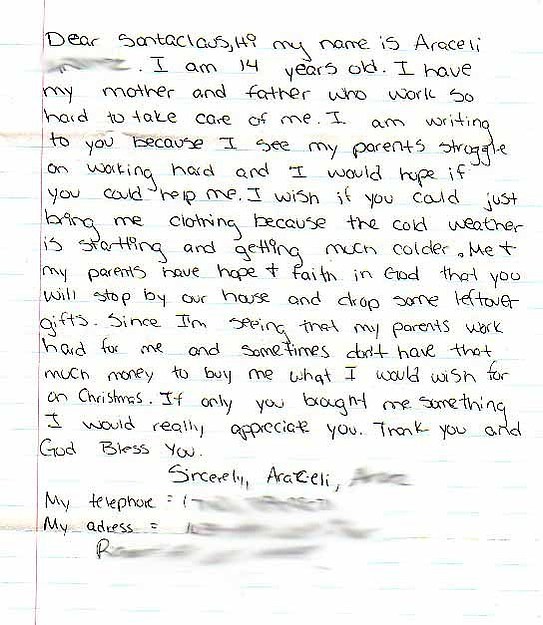 Dear Santaclaus, Hi my name is Araceli
. I am 14 years old. I have
my mother and father who work so
hard to take care of me. I am writing
to you because I see my parents struggle
on working hard and I would hope if
you could help me. I wish if you could just
bring me clothing because the cold weather
is startting and getting much colder. Me +
my parents have hope + faith in God that you
will stop by our house and drop some leftover
gifts. Since I'm seeing that my parents work
hard for me and sometimes don't have that
much money to buy me what I would wish for
on Christmas. If only you brought me something
I would really appreciate you. Thank you and
God Bless You.
Sincerely, Araceli,
My telephone :
My adress =